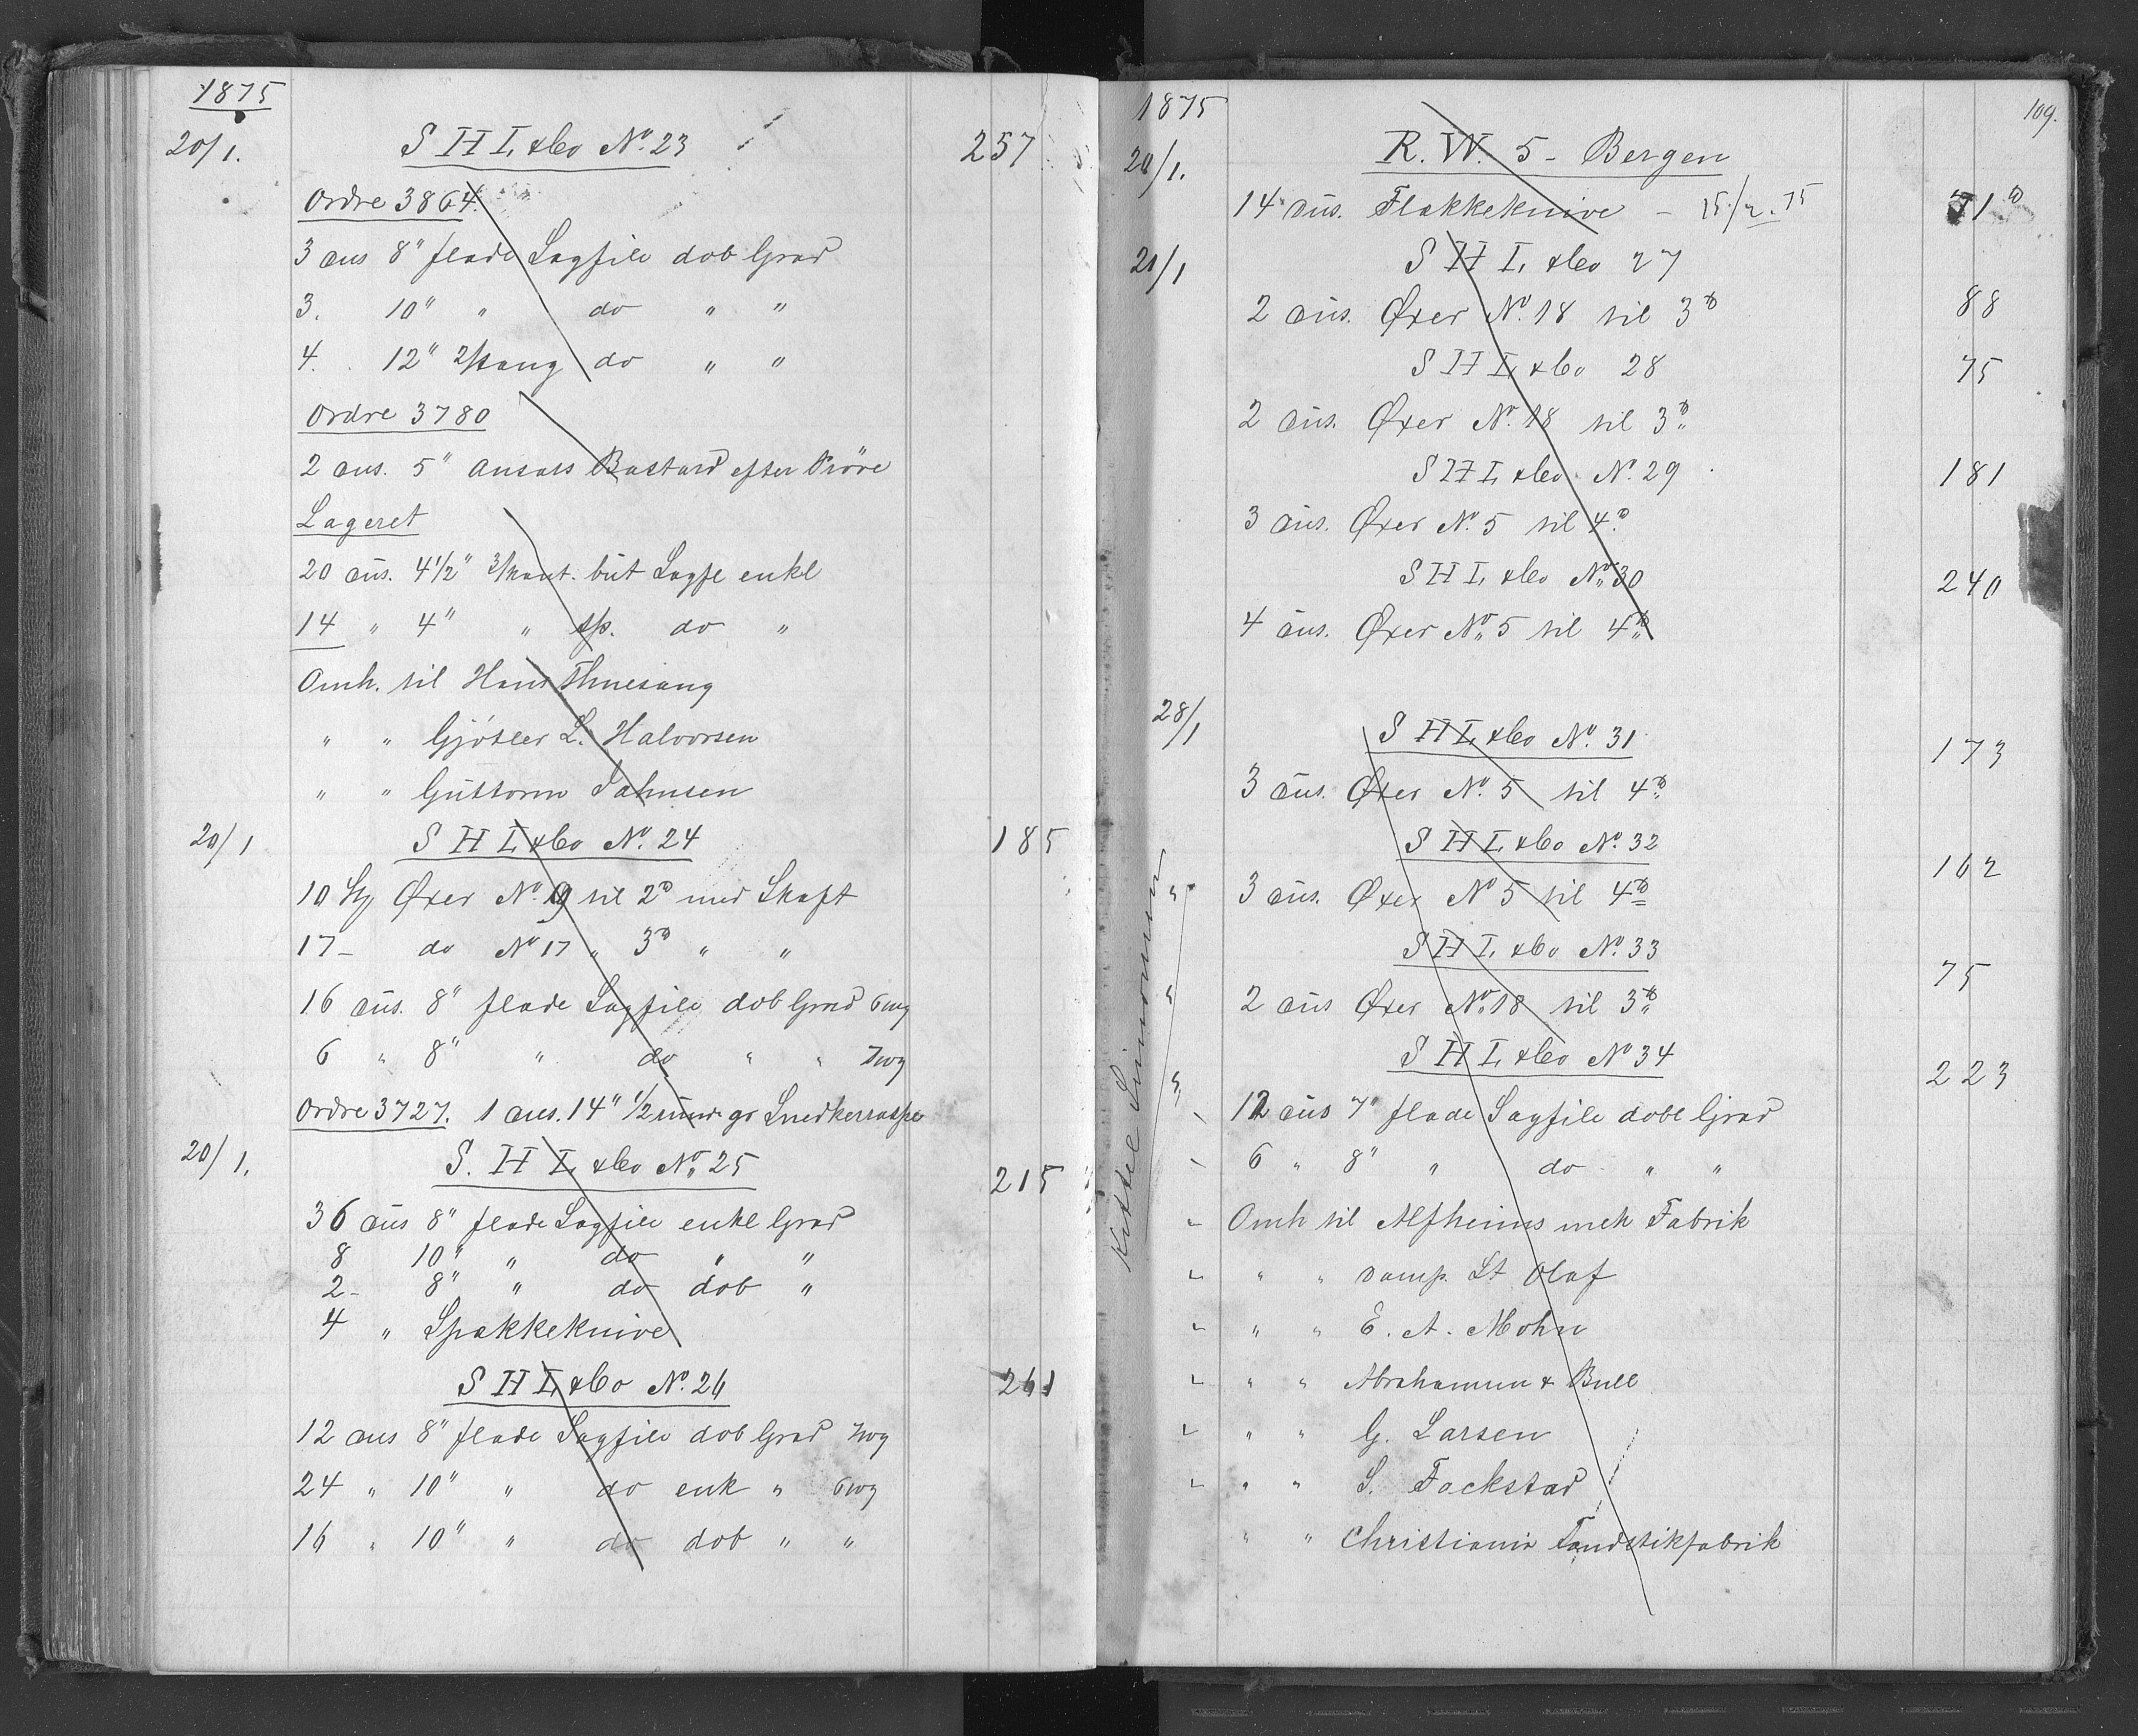 1875
20/1. S H L & Co No. 23 257
Ordre 3864.
3 dus 8" flade Sagfile dob Grad
3. 10" " do " "
4. . 12" do " "
Ordre 3780
2 dus. 5" Ansats Bastard efter Prøve
Lageret
20 dus. 4 1/2" 3/kant. but Sagfl enkl
14 " 4" " sp. do "
Omh. til Hans Thnesang
" " Gjørtler L. Halvorsen
" " Guttorm Johnsen
20/1 S H L & Co No. 24 185
10 St Øxer No. 9 til 2 med Skaft
17 - do No 17 " 3 " "
16 dus. 8" flade Sagfile dob Grad 6wg
6 " 8" " do " " 7wg
Ordre 3727. 1 dus. 14" 1/2 rund gr Snedkerraspe
20/1. S. H L & Co No. 25 215
36 dus 8" flade Sagfile enkl Grad
8 10" " do " "
2 - 8" " do dob "
4 " Spækkeknive
S H L & Co No. 26 261
12 dus 8" flade Sagfile dob Grad 7wg
24 " 10" " do enk " 6wg
16 " 10" " do dob " "
109.
1875
20/1. R. W. 5 - Bergen
14 dus. Flækkeknive - 15/2. 75 71
21/1 S H L & Co 27
2 dus. Øxer No. 18 til 3 88
S H L & Co 28 75
2 dus. Øxer No. 18 til 3
S H L & Co. No. 29 181
3 dus. Øxer No. 5 til 4
S H L & Co No. 30 240
4 dus. Øxer No. 5 til 4
28/1 S H L & Co No. 31 173
3 dus. Øxer No. 5 til 4
S H L & Co No. 32 162
" 3 dus. Øxer No 5 til 4
S H L & Co No. 33 75
" 2 dus Øxer No. 18 til 3
S H L & Co No 34 223
" 12 dus 7" flade Sagfile dobl Grad
6 " 8" " do " "
Omh til Alfheims mek Fabrik
" " Damp. St Olaf
" " E. A. Mohn
" " Abrahamsen & Bull
" " G. Larsen
" " S. Fockstad
" " Christiania Tændstikfabrik
Kittel Simonsen